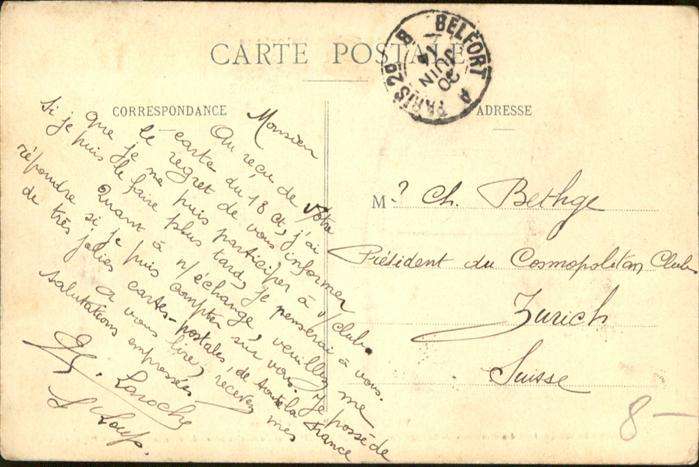 CARTE POSTALE
BELFORT A PARIS 2° B
20 JUIN
CORRESPONDANCE
ADRESSE
Monsieur
Au reçu de votre
carte du 18 ct, j'ai
le regret de vous informer
que je ne puis participer à v/ club.
Si je puis le faire plus tard, je penserai à vous.
Quant à n/ échange, veuillez me
répondre si je puis compter sur vous. Je possède
de très jolies cartes-postales, de toute la France
A vous lire, recevez mes
salutations empressées
Laroche
M.r Ch. Bethge
Président du Cosmopolitan Club
Zurich
Suisse
8-